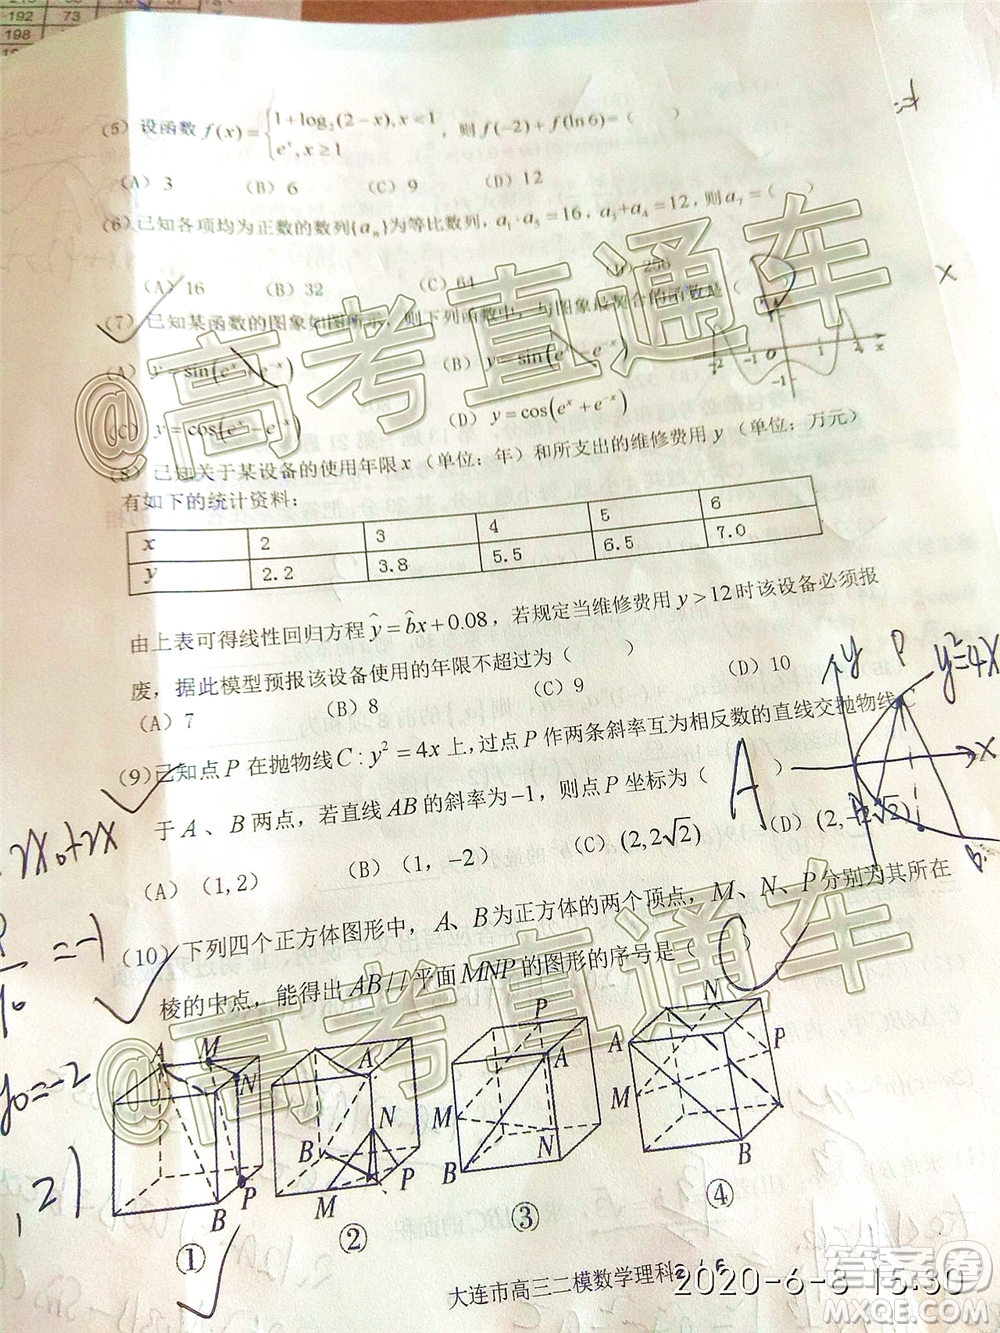 192 73
198
(5) 设函数 f(x)={1+log₂(2−x), x<1
eˣ, x≥1 , 则 f(−2)+f(ln6)=( )
(A) 3 (B) 6 (C) 9 (D) 12
(6) 已知各项均为正数的数列{aₙ}为等比数列, a₁·a₅=16, a₃+a₄=12, 则 a₇=( )
(A) 16 (B) 32 (C) 64 (D) 256
(7) 已知某函数的图象如图所示, 则下列函数中, 与图象最契合的函数是 (
(A) y=sin(eˣ+e⁻ˣ) (B) y=sin(eˣ−e⁻ˣ)
(C) y=cos(eˣ−e⁻ˣ) (D) y=cos(eˣ+e⁻ˣ)
-2 -1 O 1 2 x
-1
(8) 已知关于某设备的使用年限 x (单位: 年) 和所支出的维修费用 y (单位: 万元)
有如下的统计资料:
x 2 3 4 5 6
y 2.2 3.8 5.5 6.5 7.0
由上表可得线性回归方程 ŷ=b̂x+0.08, 若规定当维修费用 y>12 时该设备必须报
废, 据此模型预报该设备使用的年限不超过为 ( )
(A) 7 (B) 8 (C) 9 (D) 10
(9) 已知点 P 在抛物线 C: y²=4x 上, 过点 P 作两条斜率互为相反数的直线交抛物线 C
于 A、B 两点, 若直线 AB 的斜率为 −1, 则点 P 坐标为 ( )
A
(A) (1,2) (B) (1,−2) (C) (2,2√2) (D) (2,−2√2)
y P y²=4x
x
(10) 下列四个正方体图形中, A、B 为正方体的两个顶点, M、N、P 分别为其所在
棱的中点, 能得出 AB//平面 MNP 的图形的序号是 ( )
C
A M N B P
A N B M P
P A M N B
N A P M B
① ② ③ ④
2x₀+2x
=-1
y₀=-2
2)
@高考直通车
@高考直通车
大连市高三二模数学理科 2 / 6
2020-6-8 15:30
答案圈
MXQE.COM